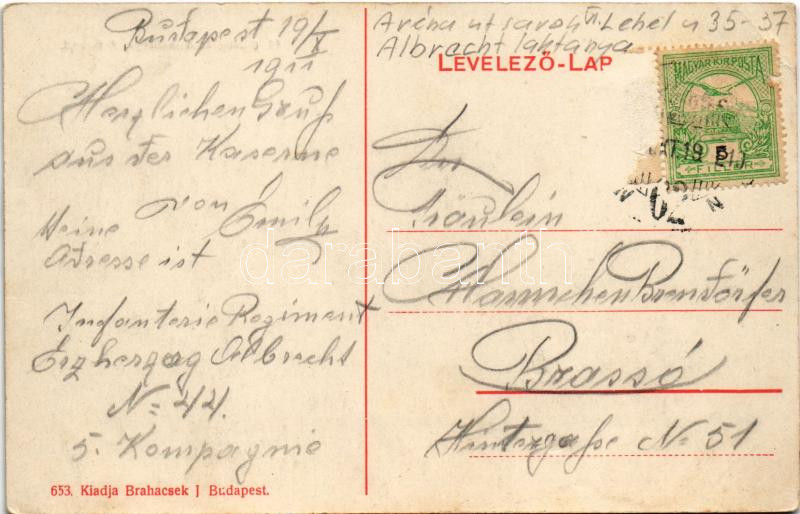 Budapest 19/X
1911
Herzlichen Gruß
aus der Kaserne
von Emil
Meine
Adresse ist
Infanterie Regiment
Erzherzog Albrecht
No 44.
5. Kompagnie
653. Kiadja Brahacsek J Budapest.
Aréna ut sarok VI. Lehel u 35-37
Albrecht laktanya
LEVELEZŐ-LAP
MAGYAR KIR. POSTA
5
FILLÉR
Fräulein
Hannchen Brendörfer
Brassó
Hintergaße No 51
darabanth